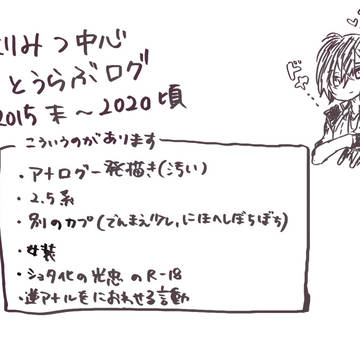 みつ中心
とうらぶログ
2015末～2020頃
こういうのがあります
・アナログ一発描き(汚い)
・2.5系
・別のカプ(でんまえ少し、にほへしぼちぼち)
・女装
・ショタ化の光忠のR-18
・逆アナルをにおわせる言動